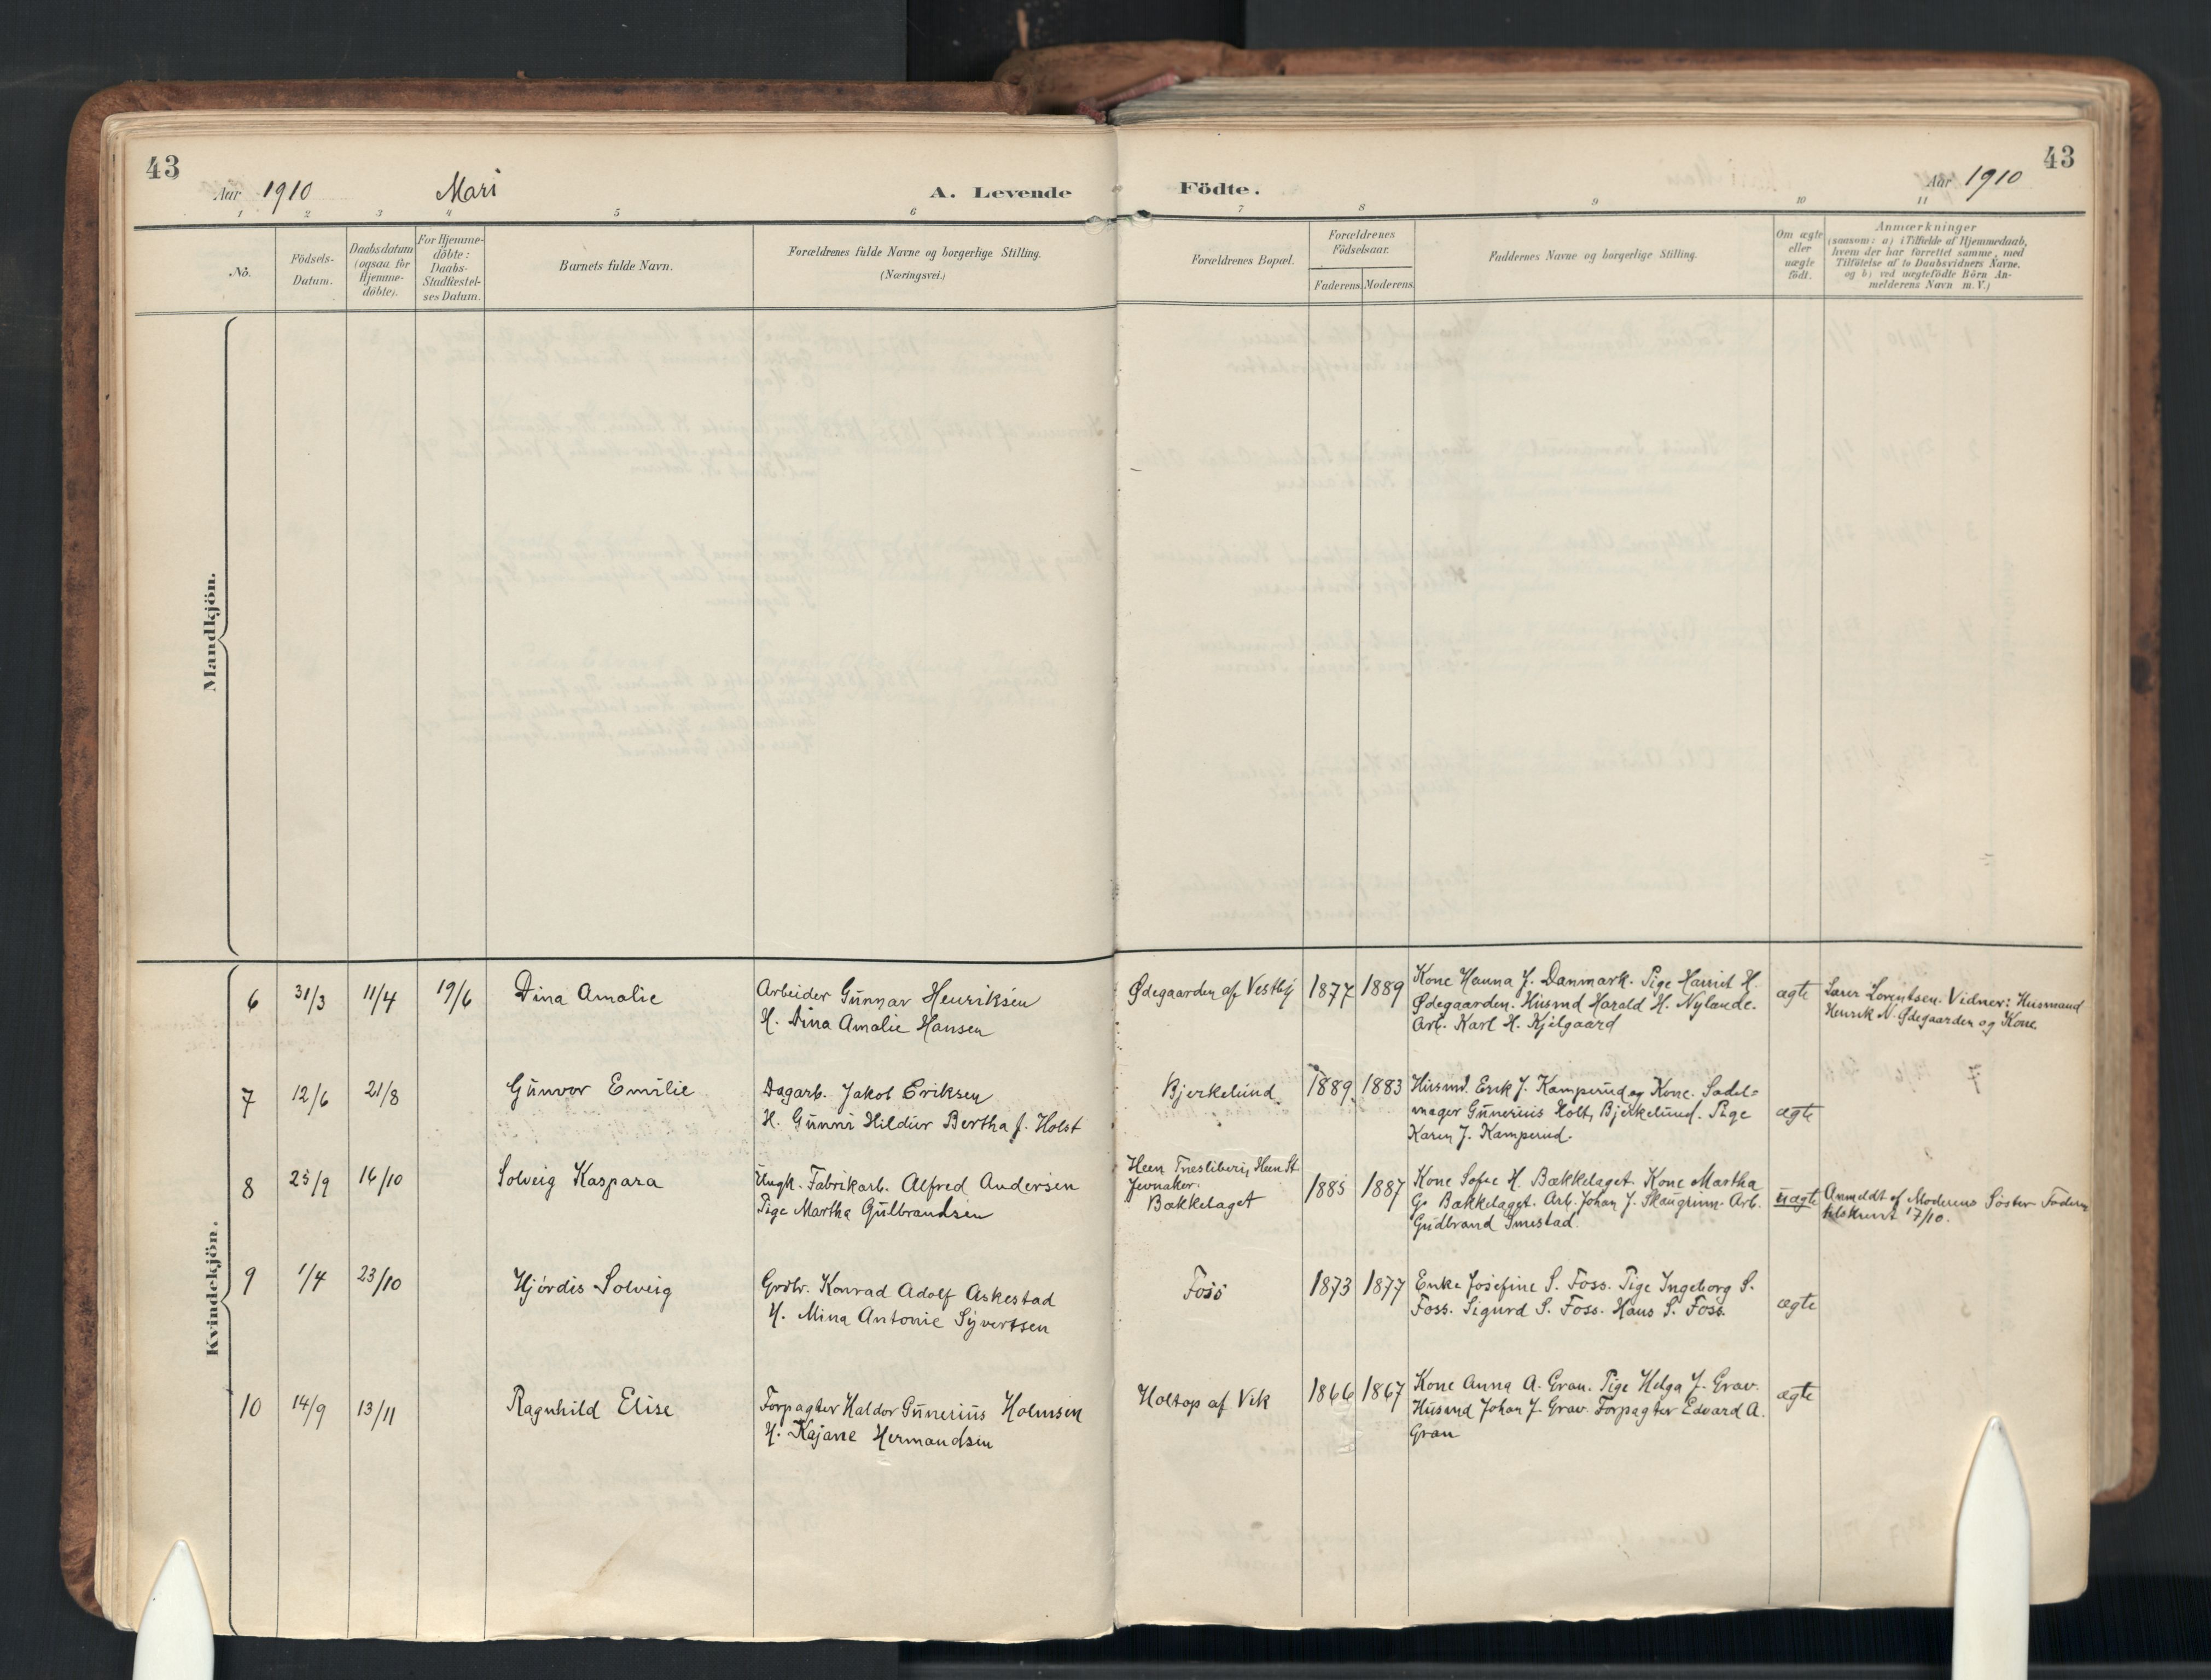 43
Aar 1910
Mari
A. Levende
Födte.
Aar 1910
43
1 2 3 4 5 6 7 8 9 10 11
No.
Födsels-
Datum.
Daabsdatum
(ogsaa for
Hjemme-
döbte).
For Hjemme-
döbte:
Daabs-
Stadfæstel-
ses Datum.
Barnets fulde Navn.
Forældrenes fulde Navne og borgerlige Stilling.
(Næringsvei.)
Forældrenes Bopæl.
Forældrenes
Födselsaar.
Faderens. Moderens.
Faddernes Navne og borgerlige Stilling.
Om ægte
eller
uægte
födt.
Anmærkninger
(saasom: a) i Tilfælde af Hjemmedaab,
hvem der har forrettet samme, med
Tilföielse af to Daabsvidners Navne,
og b) ved uægtefödte Börn An-
melderens Navn m. V.)
Mandkjön.
Kvindekjön.
6 31/3 11/4 19/6 Dina Amalie
Arbeider Gunnar Henriksen
H. Dina Amalie Hansen
Ødegaarden af Vestby 1877 1889
Kone Hanna J. Danmark. Pige Harriet H.
Ødegaarden. Husmd Harald H. Nylande.
Arb. Karl H. Kjilgaard
ægte
Lærer Lorentsen. Vidner: Husmand
Henrik N. Ødegaarden og Kone
7 12/6 21/8 Gunvor Emilie
Dagarb. Jakob Eriksen
H. Gunni Hildur Bertha J. Holst
Bjerkelund. 1889. 1883
Husmd. Erik J. Kamperud og Kone. Sadel-
mager Gunerius Holt, Bjerkelund. Pige
Karen J. Kamperud.
ægte
8 25/9 16/10 Solveig Kaspara
Ungk. Fabrikarb. Alfred Andersen
Pige Martha Gulbrandsen
Heen Træsliberi, Heen St
Jevnaker.
Bakkelaget
1885 1887
Kone Sofie H. Bakkelaget. Kone Martha
G. Bakkelaget. Arb. Johan J. Skaugrinn. Arb.
Gudbrand Smestad.
uægte
Anmeldt af Moderens Søster. Faderen
tilskrevet 17/10.
9 1/4 23/10 Hjördis Solveig
Grdbr. Konrad Adolf Askestad
H. Mina Antonie Syvertsen
Foss 1873 1877
Enke Josefine S. Foss. Pige Ingeborg S.
Foss. Sigurd S. Foss. Hans S. Foss.
ægte
10 14/9 13/11 Ragnhild Elise
Forpagter Haldor Gunerius Holmsen
H. Kajane Hermandsen
Holtop af Vik 1866 1867
Kone Anna A. Grau. Pige Helga J. Grav.
Husmd Johan J. Grav. Forpagter Edvard A.
Grau
ægte